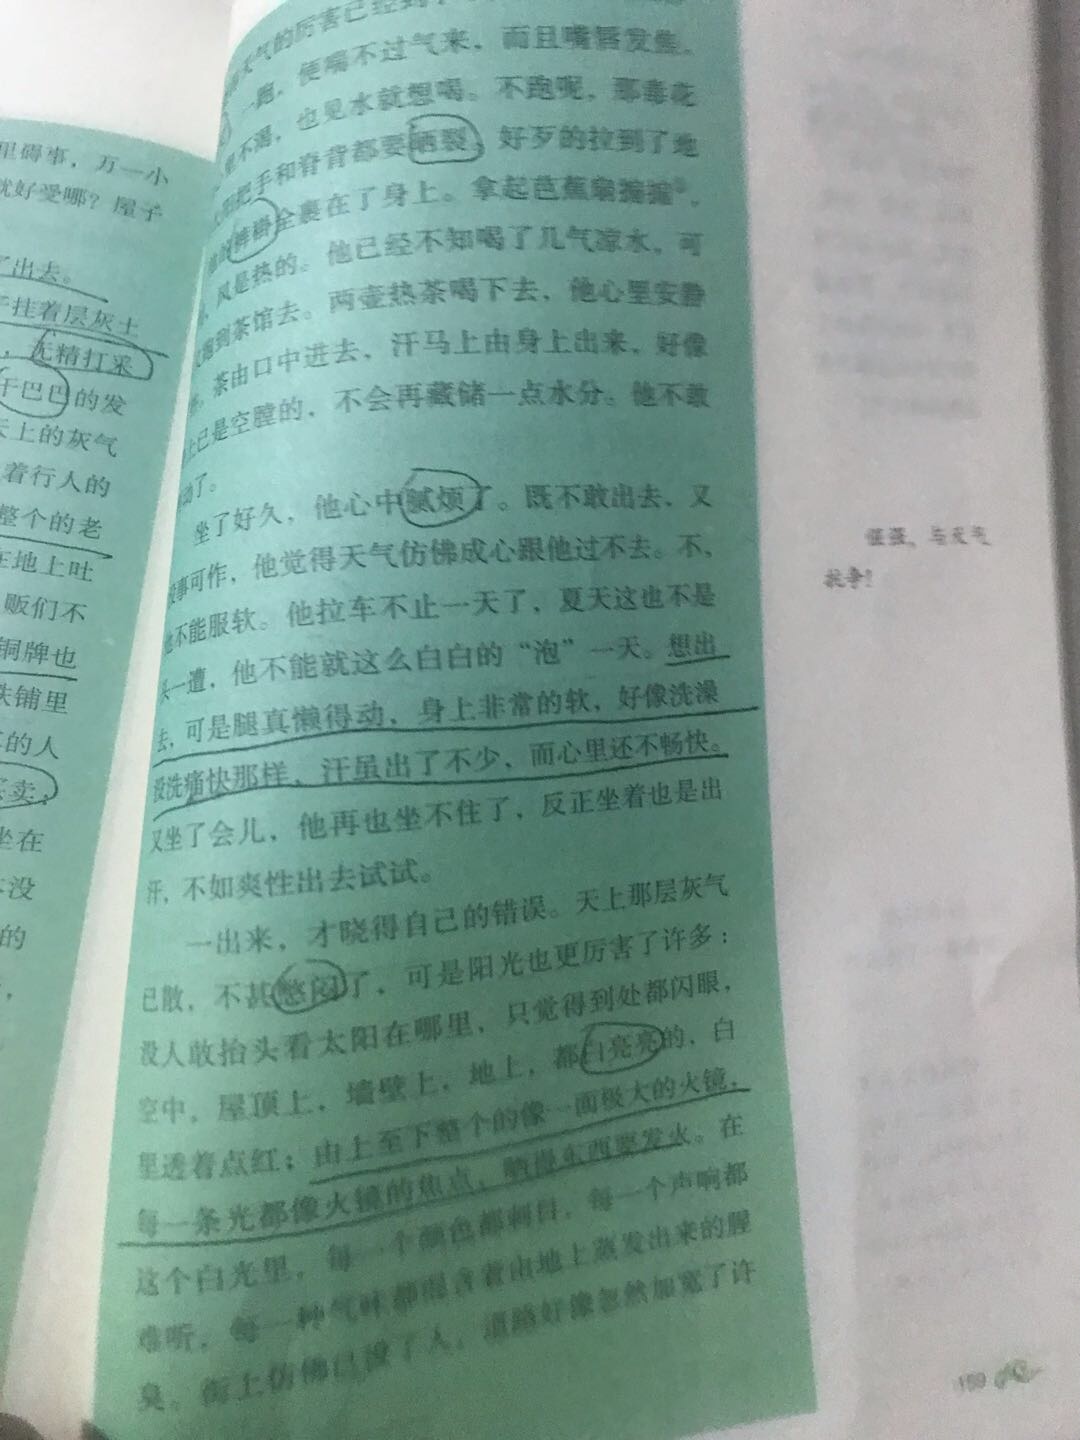 里碍事，万一小
就好受哪？屋子
了出去。
挂着层灰土
，无精打采
干巴巴的发
天上的灰气
着行人的
整个的老
在地上吐
贩们不
铜牌也
铁铺里
的人
卖，
坐在
没
的
天气的厉害已经到
一跑，便喘不过气来，而且嘴唇发焦，
里不渴，也见水就想喝。不跑呢，那毒花
太阳把手和脊背都要晒裂。好歹的拉到了地
裤褂全裹在了身上。拿起芭蕉扇搧搧，
风是热的。他已经不知喝了几气凉水，可
跑到茶馆去。两壶热茶喝下去，他心里安静
茶由口中进去，汗马上由身上出来，好像
上已是空膛的，不会再藏储一点水分。他不敢
动了。
坐了好久，他心中腻烦了。既不敢出去，又
没事可作，他觉得天气仿佛成心跟他过不去。不，
他不能服软。他拉车不止一天了，夏天这也不是
头一遭，他不能就这么白白的“泡”一天。想出
去，可是腿真懒得动，身上非常的软，好像洗澡
没洗痛快那样，汗虽出了不少，而心里还不畅快。
又坐了会儿，他再也坐不住了，反正坐着也是出
汗，不如爽性出去试试。
一出来，才晓得自己的错误。天上那层灰气
已散，不甚憋闷了，可是阳光也更厉害了许多：
没人敢抬头看太阳在哪里，只觉得到处都闪眼，
空中，屋顶上，墙壁上，地上，都白亮亮的，白
里透着点红；由上至下整个的像一面极大的火镜，
每一条光都像火镜的焦点，晒得东西要发火。在
这个白光里，每一个颜色都刺目，每一个声响都
难听，每一种气味都混含着由地上蒸发出来的腥
臭。街上仿佛已没了人，道路好像忽然加宽了许
倔强，与天气
抗争！
159